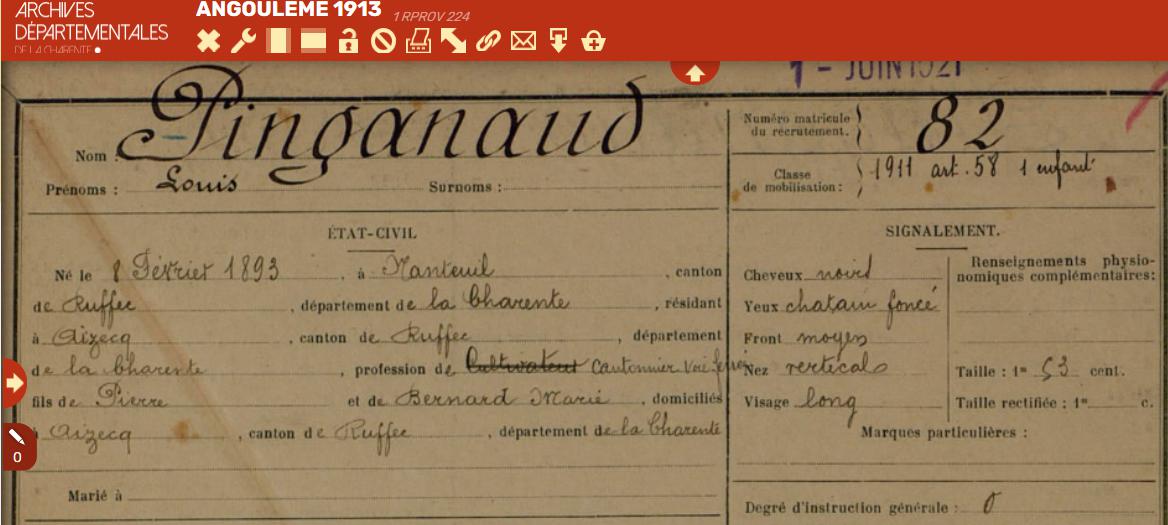 ARCHIVES
DÉPARTEMENTALES
DE LA CHARENTE
ANGOULEME 1913 1 RPROV 224
1 - JUIN 1921
Nom : Pinganaud
Prénoms : Louis Surnoms :
Numéro matricule du recrutement. 82
Classe de mobilisation : 1911 art. 58 1 enfant
ÉTAT-CIVIL
Né le 8 Février 1893, à Nanteuil, canton
de Ruffec, département de la Charente, résidant
à Aizecq, canton de Ruffec, département
de la Charente, profession de Cultivateur Cantonnier Voie
fils de Pierre et de Bernard Marie, domiciliés
à Aizecq, canton de Ruffec, département de la Charente
Marié à
SIGNALEMENT.
Cheveux noirs
Yeux chatain foncé
Front moyen
Nez vertical
Visage long
Renseignements physio-
nomiques complémentaires:
Taille : 1m 53 cent.
Taille rectifiée : 1m c.
Marques particulières :
Degré d'instruction générale : 0
0